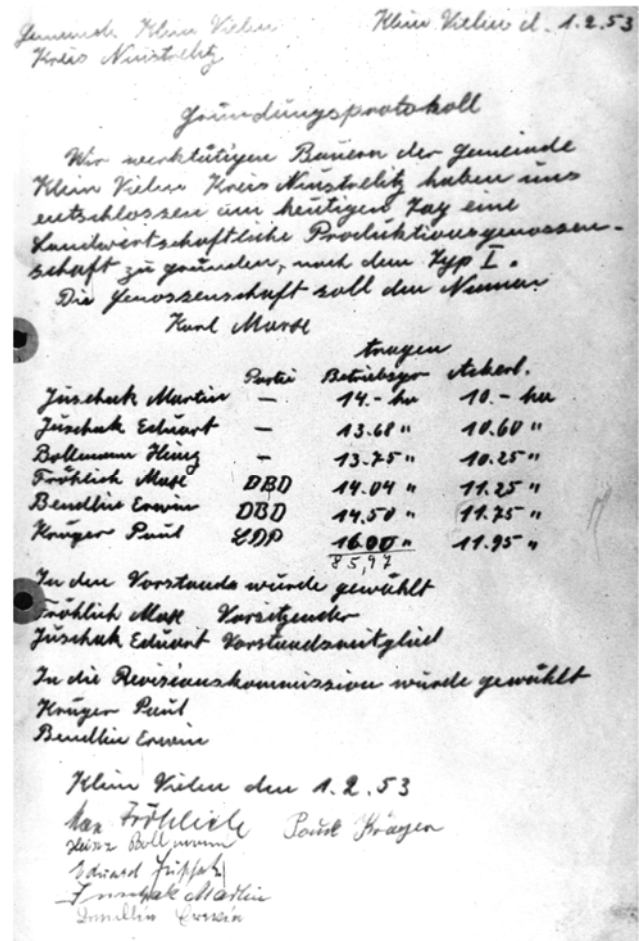 Gemeinde Klein Vielen Klein Vielen d. 1.2.53
Kreis Neustrelitz
Gründungsprotokoll
Wir werktätigen Bauern der Gemeinde
Klein Vielen Kreis Neustrelitz haben uns
entschlossen am heutigen Tag eine
Landwirtschaftliche Produktionsgenossen-
schaft zu gründen, nach dem Typ I.
Die Genossenschaft soll den Namen
Karl Marx
tragen
Partei Betriebsgr. Ackerl.
Juschak Martin — 14.- ha 10.- ha
Juschak Eduart — 13.68 " 10.60 "
Bollmann Heinz — 13.75 " 10.25 "
Fröhlich Max DBD 14.04 " 11.25 "
Bendlin Erwin DBD 14.50 " 11.75 "
Krüger Paul LDP 16.00 " 11.95 "
85,97
In den Vorstands wurde gewählt
Fröhlich Max Vorsitzender
Juschak Eduart Vorstandsmitglied
In die Revisionskommission wurde gewählt
Krüger Paul
Bendlin Erwin
Klein Vielen den 1.2.53
Max Fröhlich Paul Krüger
Heinz Bollmann
Eduard Juschak
Juschak Martin
Bendlin Erwin